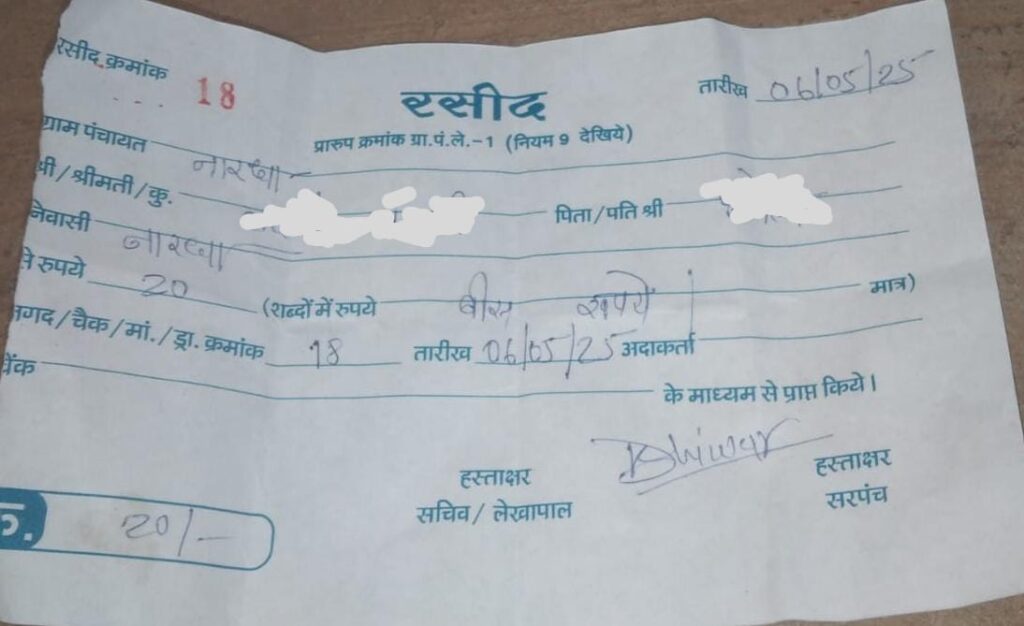 रसीद क्रमांक 18
तारीख 06/05/25
रसीद
प्रारुप क्रमांक ग्रा.पं.ले.-1 (नियम 9 देखिये)
ग्राम पंचायत नारधा
श्री/श्रीमती/कु. पिता/पति श्री
निवासी नारधा
से रुपये 20 (शब्दों में रुपये बीस रूपये मात्र)
नगद/चैक/मां./ड्रा. क्रमांक 18 तारीख 06/05/25 अदाकर्ता
बैंक के माध्यम से प्राप्त किये।
हस्ताक्षर
सचिव/ लेखापाल
हस्ताक्षर
सरपंच
रु. 20/-